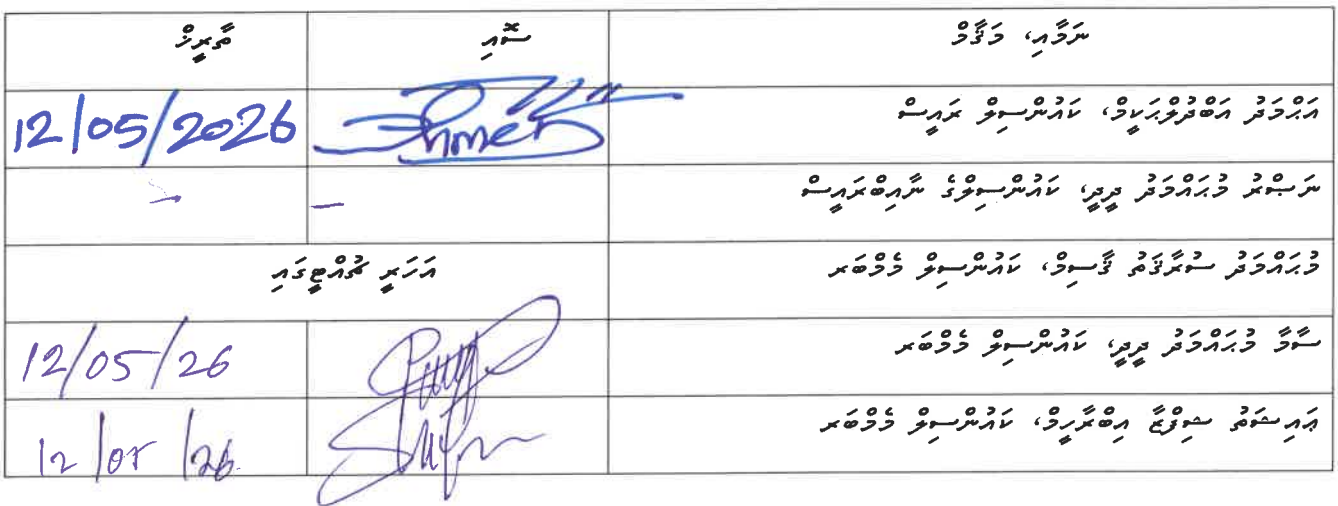 ނަމާއި، މަޤާމް ސޮއި ތާރީޚް
އަޙްމަދު އަބްދުލްޙަކީމް، ކައުންސިލް ރައީސް 12/05/2026
ނަޞްރު މުޙައްމަދު ދީދީ، ކައުންސިލްގެ ނާއިބްރައީސް - -
މުޙައްމަދު ސުރާޤަތު ޤާސިމް، ކައުންސިލް މެމްބަރ އަހަރީ ޗުއްޓީގައި
ސާމާ މުޙައްމަދު ދީދީ، ކައުންސިލް މެމްބަރ 12/05/26
ޢައިޝަތު ޝިފްޒާ އިބްރާހީމް، ކައުންސިލް މެމްބަރ 12/05/26